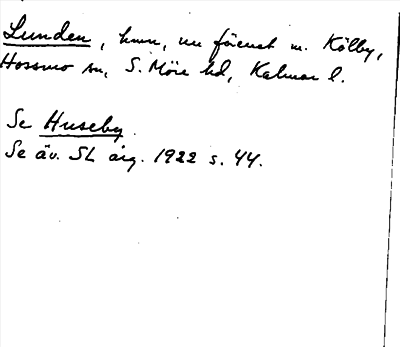 Lunden, hmn, nu förenat m. Kölby,
Hossmo sn, S. Möre hd, Kalmar l.
Se Huseby.
Se äv. SL årg. 1922 s. 44.